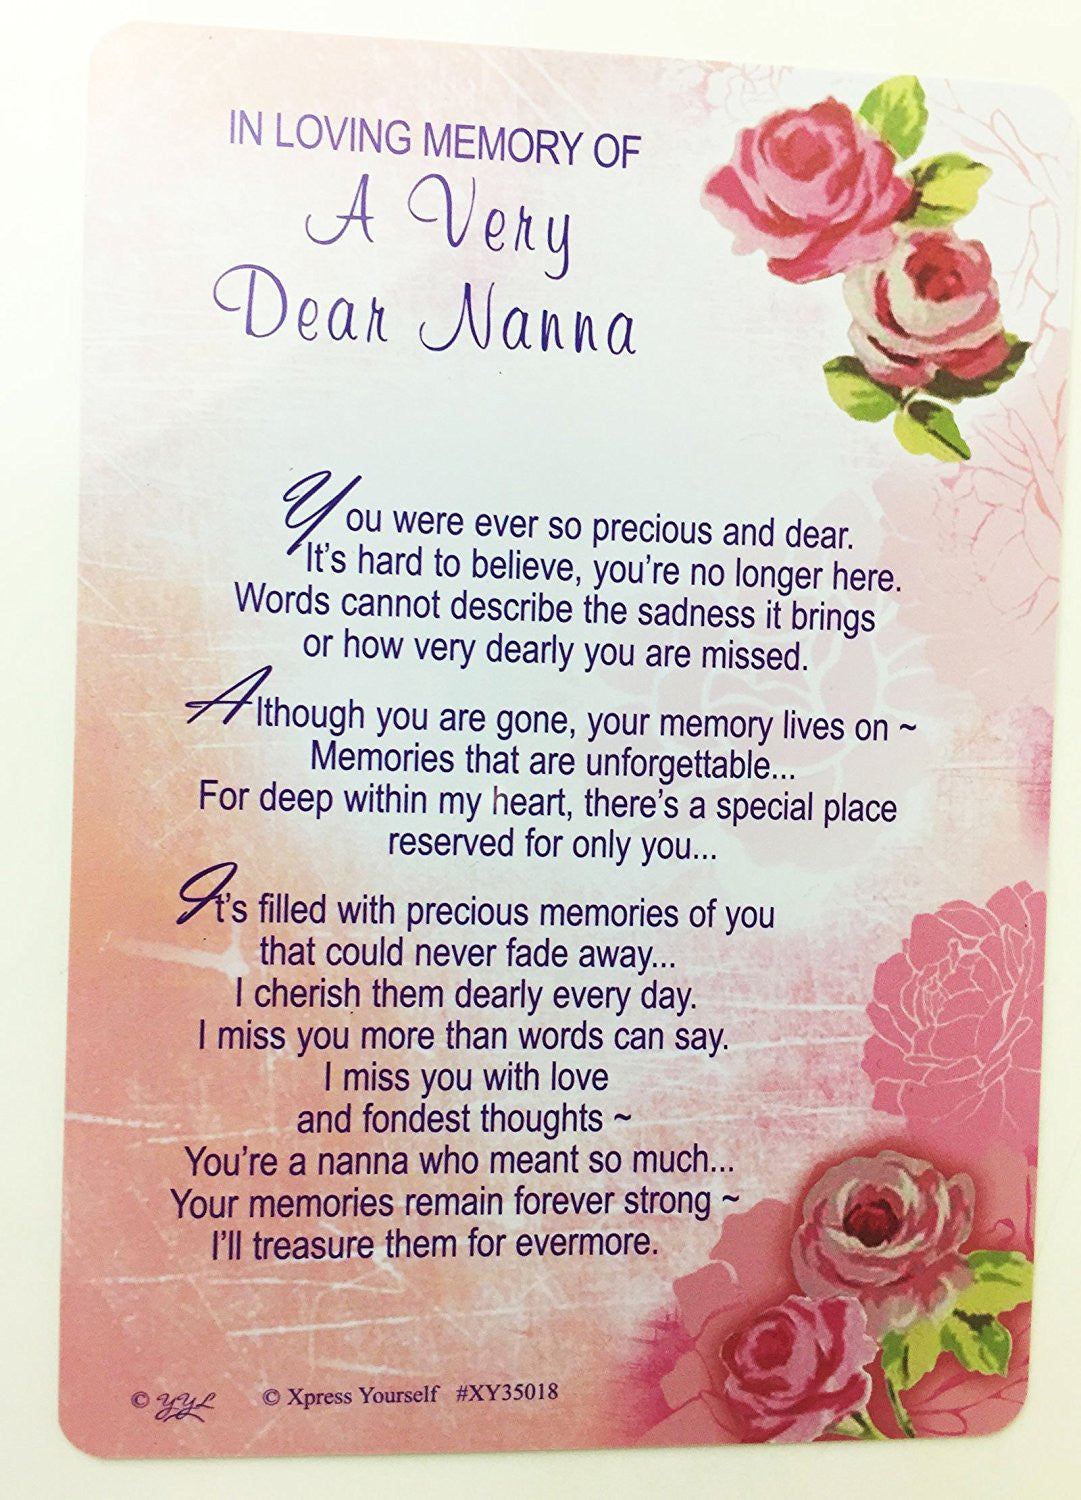 IN LOVING MEMORY OF
A Very
Dear Nanna
You were ever so precious and dear.
It's hard to believe, you're no longer here.
Words cannot describe the sadness it brings
or how very dearly you are missed.
Although you are gone, your memory lives on ~
Memories that are unforgettable...
For deep within my heart, there's a special place
reserved for only you...
It's filled with precious memories of you
that could never fade away...
I cherish them dearly every day.
I miss you more than words can say.
I miss you with love
and fondest thoughts ~
You're a nanna who meant so much...
Your memories remain forever strong ~
I'll treasure them for evermore.
© YYL © Xpress Yourself #XY35018